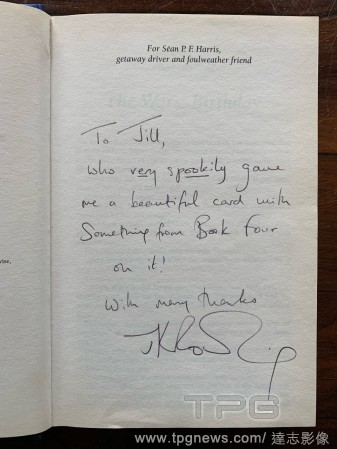 For Séan P. F. Harris,
getaway driver and foulweather friend
The Worst Birthday
To Jill,
who very spookily gave
me a beautiful card with
Something from Book Four
on it!
With many thanks
JKRowling
TPG
www.tpgnews.com/達志影像